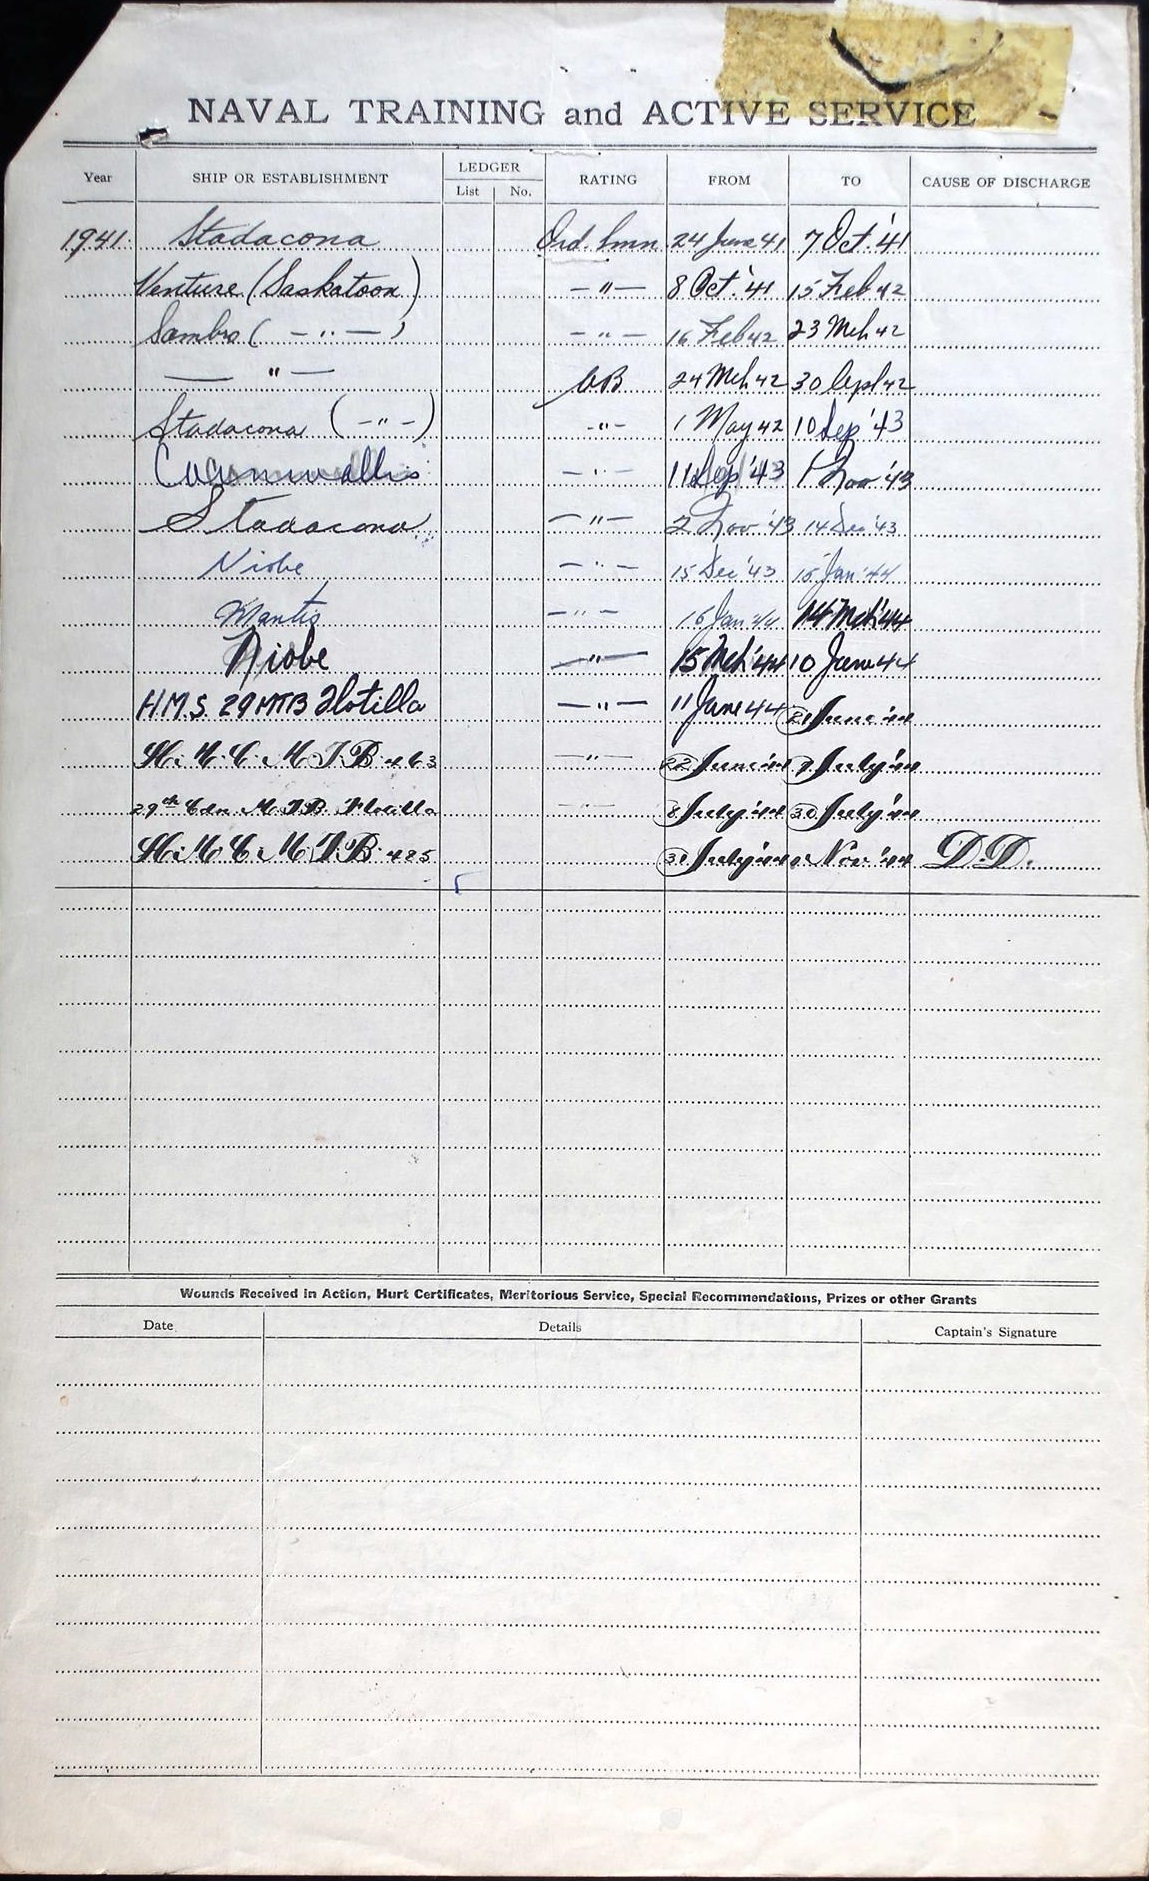 NAVAL TRAINING and ACTIVE SERVICE
Year SHIP OR ESTABLISHMENT LEDGER List No. RATING FROM TO CAUSE OF DISCHARGE
1941 Stadacona Ord. Smn 24 June 41 7 Oct. '41
Venture (Saskatoon) — " — 8 Oct. '41 15 Feb 42
Sambro ( — " — ) — " — 16 Feb 42 23 Mch 42
— " — AB 24 Mch 42 30 Apl 42
Stadacona ( - " - ) - " - 1 May 42 10 Sep '43
Cornwallis — " — 11 Sep '43 1 Nov '43
Stadacona — " — 2 Nov '43 14 Dec '43
Niobe — " — 15 Dec '43 15 Jan '44
Mantis — " — 16 Jan 44 14 Mch '44
Niobe — " — 15 Mch '44 10 June 44
H.M.S. 29 MTB Flotilla — " — 11 June 44 21 June '44
H.M.C. M.T.B. 463 — " — 22 June '44 7 July '44
29th Cdn. M.T.B. Flotilla — " — 8 July '44 30 July '44
H.M.C. M.T.B. 485 31 July '44 Nov. '44 D.D.
Wounds Received in Action, Hurt Certificates, Meritorious Service, Special Recommendations, Prizes or other Grants
Date Details Captain's Signature